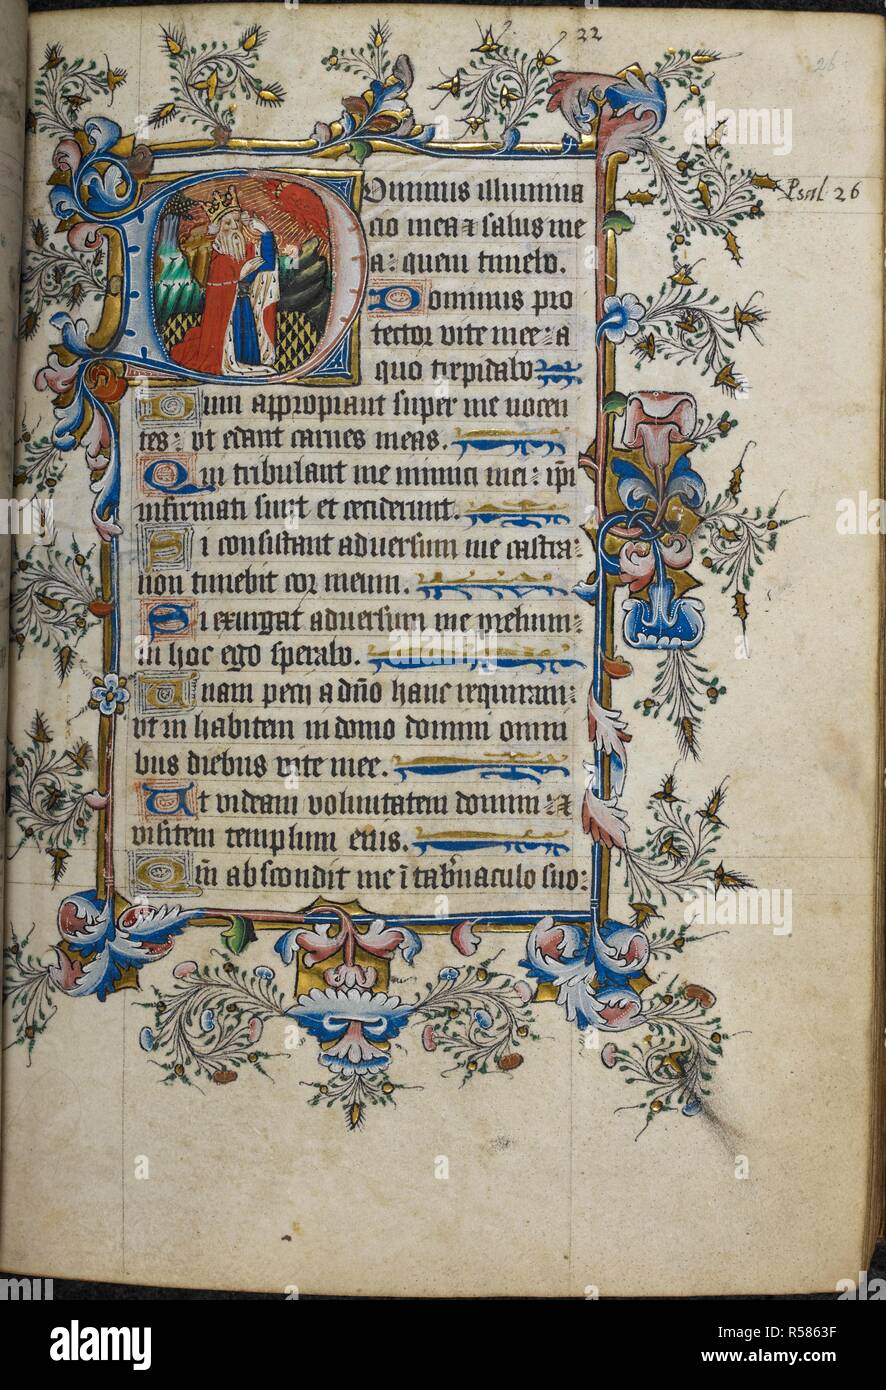 22
26
Psal 26
Dominus illumina
cio mea & salus me
a: quem timebo.
Dominus pro
tector vite mee: a
quo trepidabo
Dum appropiant super me nocen
tes: ut edant carnes meas.
Qui tribulant me inimici mei: ipi
infirmati sunt et ceciderunt.
Si consistant adversum me castra:
non timebit cor meum.
Si exurgat adversum me prelium:
in hoc ego sperabo.
Unam pecii a dño hanc requiram:
ut in habitem in domo domini omni
bus diebus vite mee.
Ut videam voluntatem domini: &
visitem templum eius.
Qm̄ abscondit me ī tab'naculo suo:
alamy
Image ID: R5863F
www.alamy.com